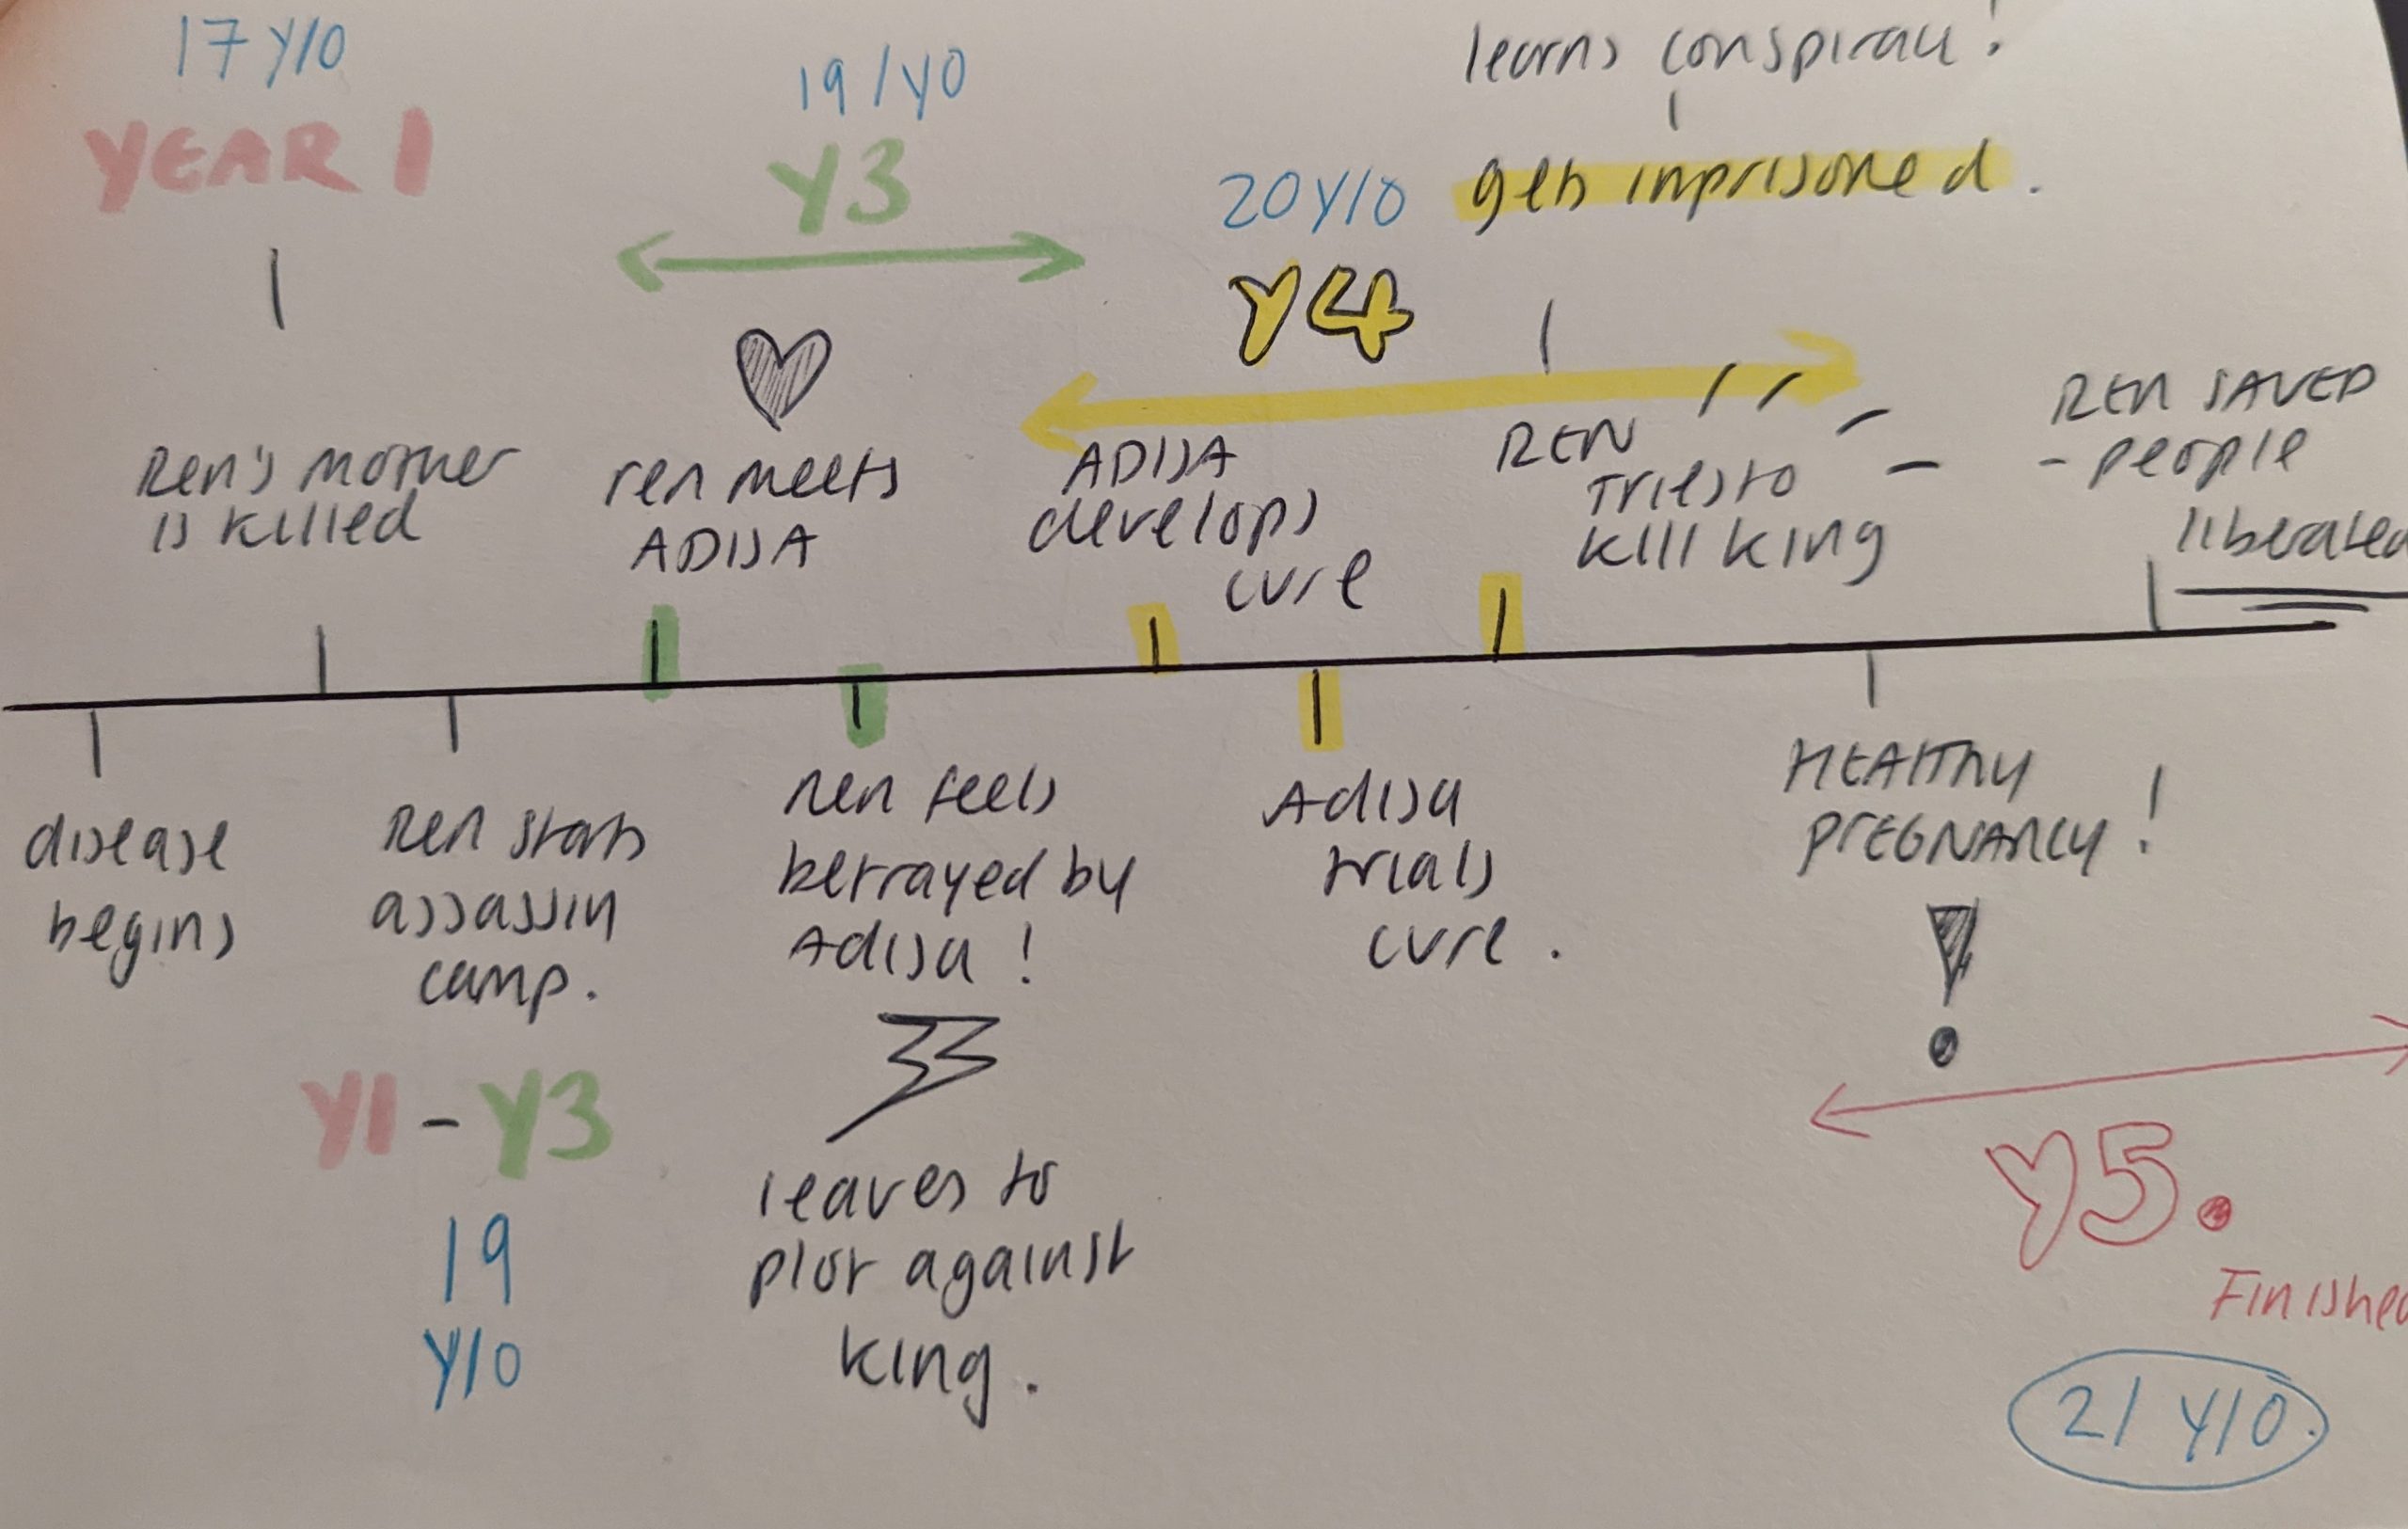 17 Y/O
YEAR 1
19/YO
Y3
learns conspiracy!
20 Y/O
gets inprisoned.
Y4
Ren's mother
is killed
ren meets
ADISA
ADISA
develops
cure
REN
Tries to
kill king
REN SAVED
- people
liberated
disease
begins
Ren starts
assassin
camp.
Y1 - Y3
19
Y/O
Ren feels
betrayed by
Adisa!
leaves to
plot against
king.
Adisa
trials
cure.
HEALTHY
PREGNANCY!
Y5.
Finished
21 Y/O.